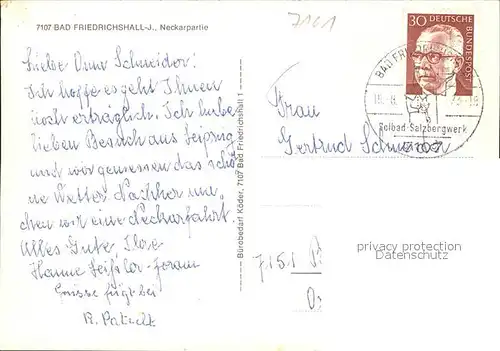 7107 BAD FRIEDRICHSHALL-J., Neckarpartie
7161
Liebe Frau Schneider!
Ich hoffe es geht Ihnen
noch erträglich. Ich habe
lieben Besuch aus Leipzig
und wir geniessen das schö
ne Wetter. Nachher ma
chen wir eine Neckarfahrt.
Alles Gute Ihre
Hanne
Grüsse fügt bei
R.
Bürobedarf Köder, 7107 Bad Friedrichshall 1
30
DEUTSCHE BUNDESPOST
BAD FRIEDRICHSHALL
Solbad-Salzbergwerk
7107
Frau
Gertrud
7151
privacy protection
Datenschutz